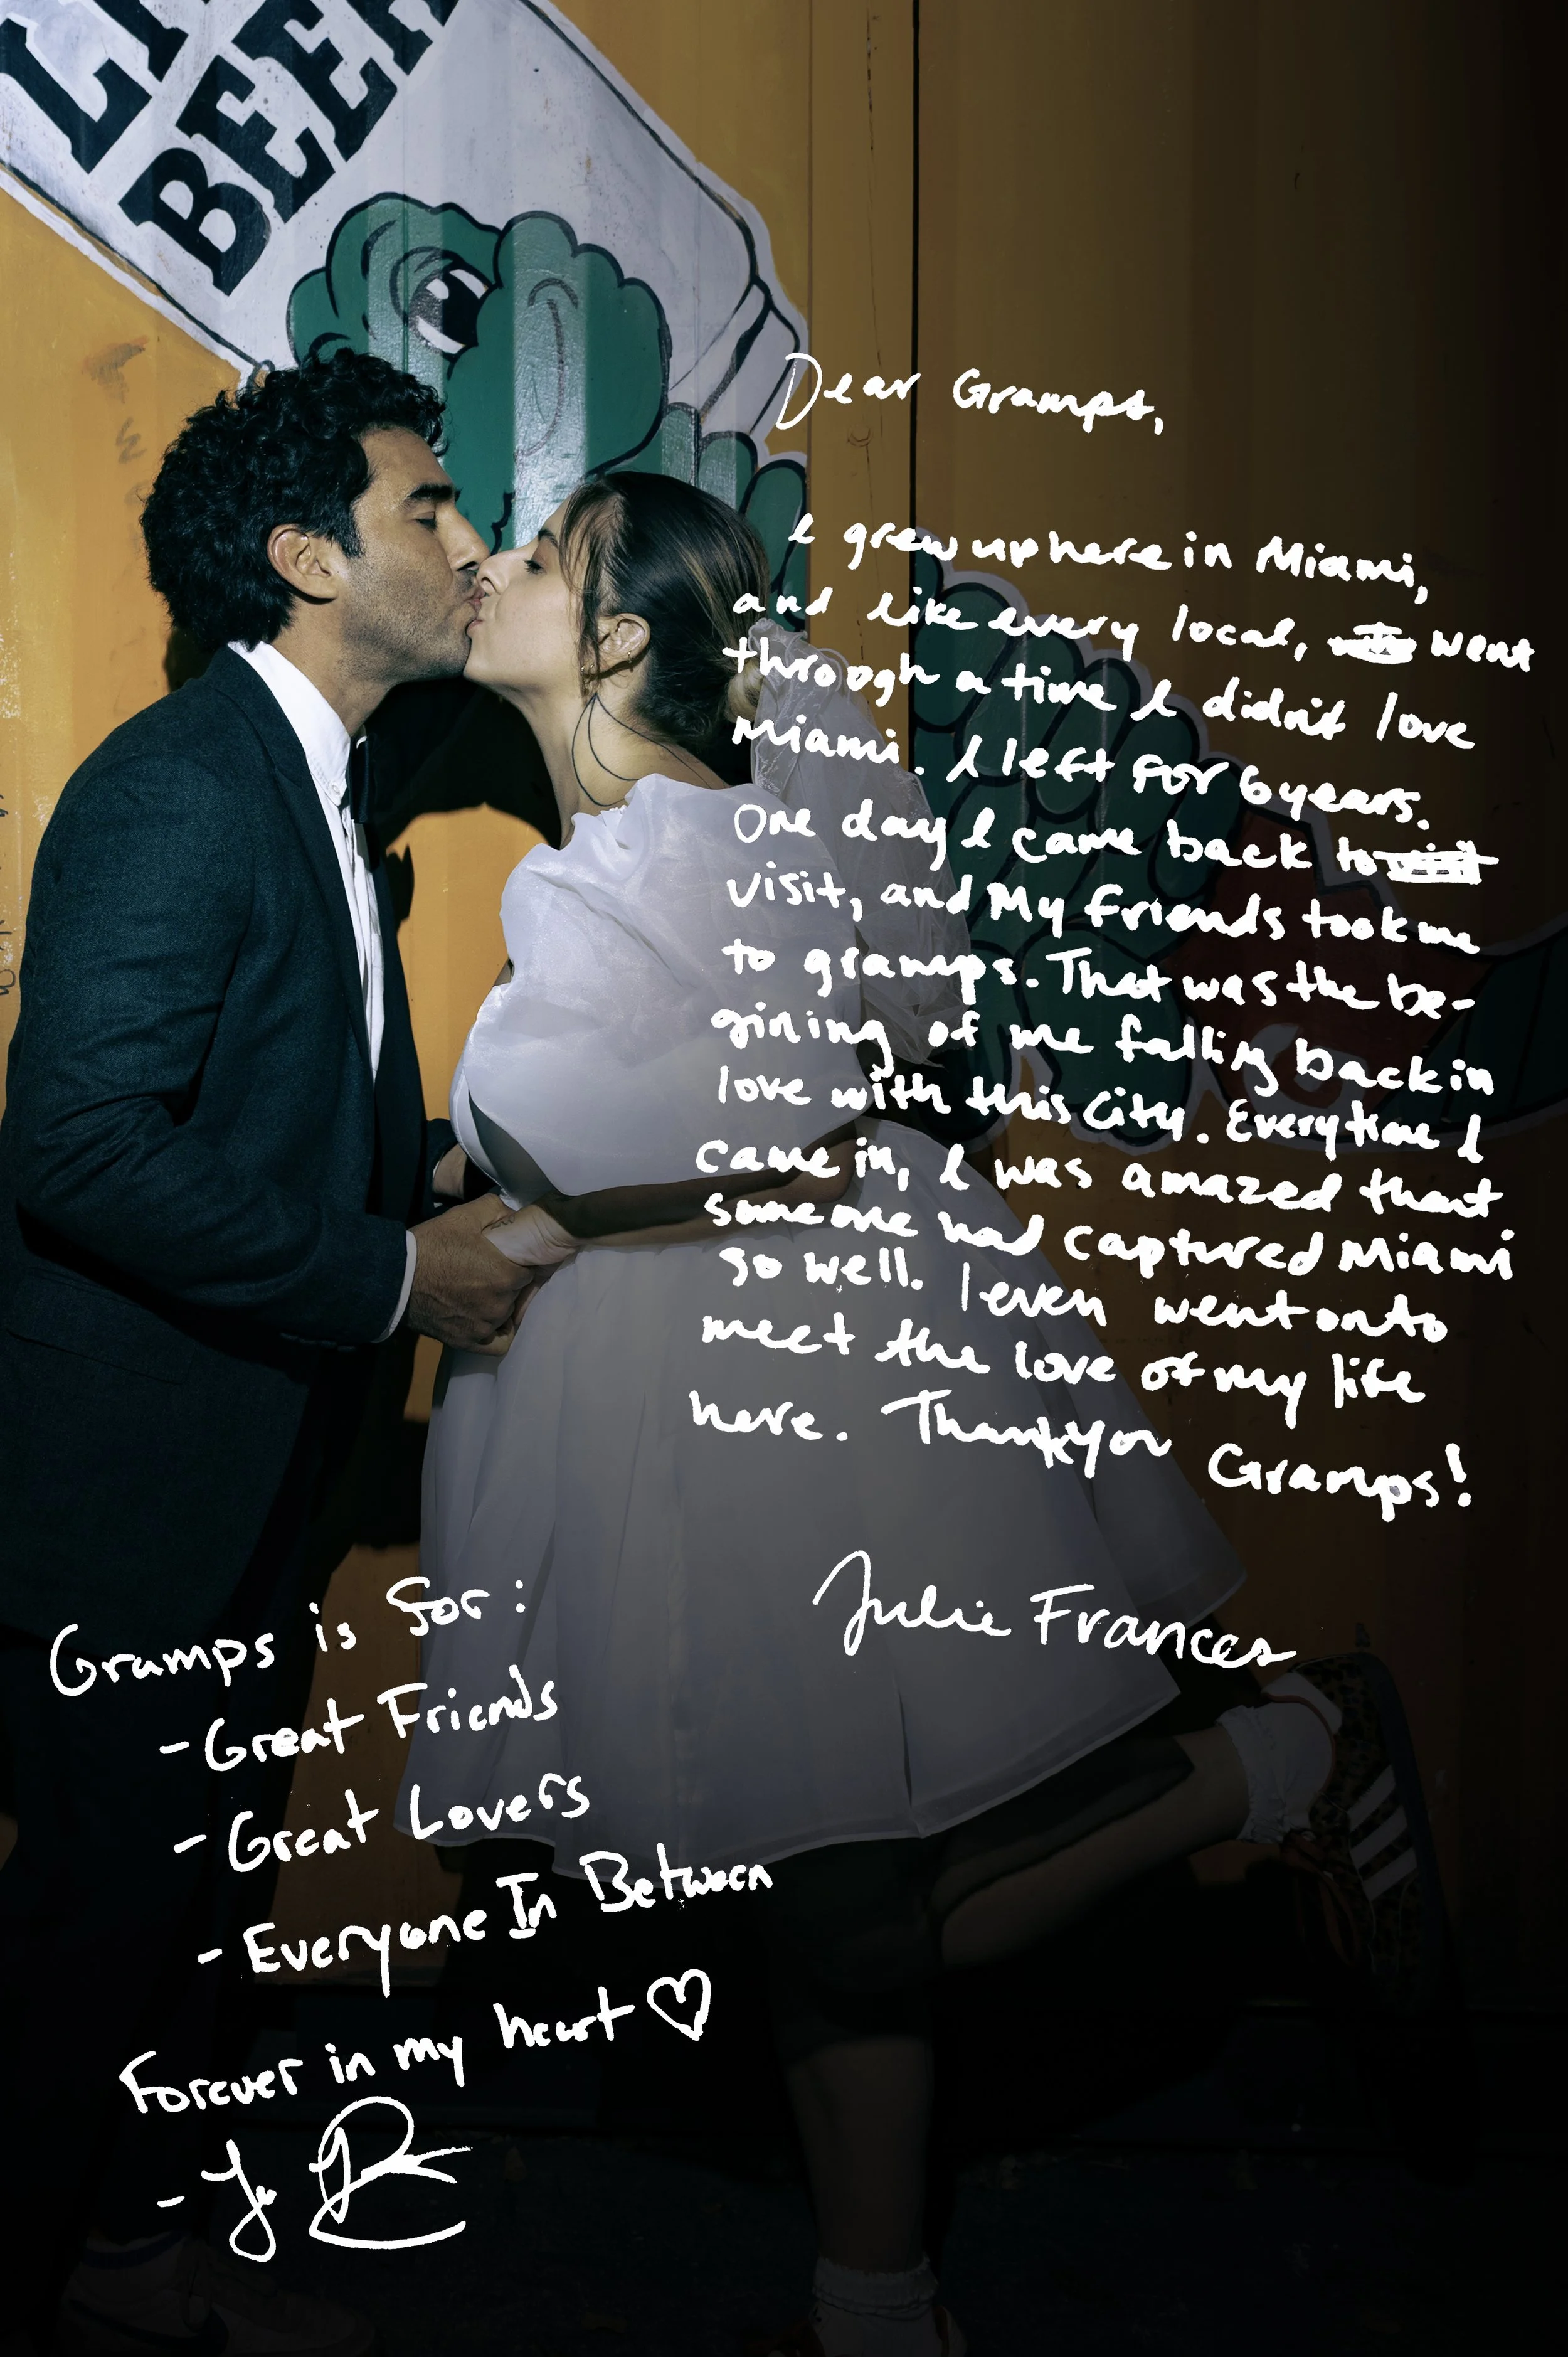 BEER
Dear Gramps,
I grew up here in Miami,
and like every local, went
through a time I didn't love
Miami. I left for 6 years.
One day I came back to
visit, and My friends took me
to gramps. That was the be-
gining of me falling back in
love with this City. Everytime I
came in, I was amazed that
someone had captured Miami
so well. I even went onto
meet the love of my life
here. Thank you Gramps!
Julie Frances
Gramps is for:
- Great Friends
- Great Lovers
- Everyone In Between
Forever in my heart ♡